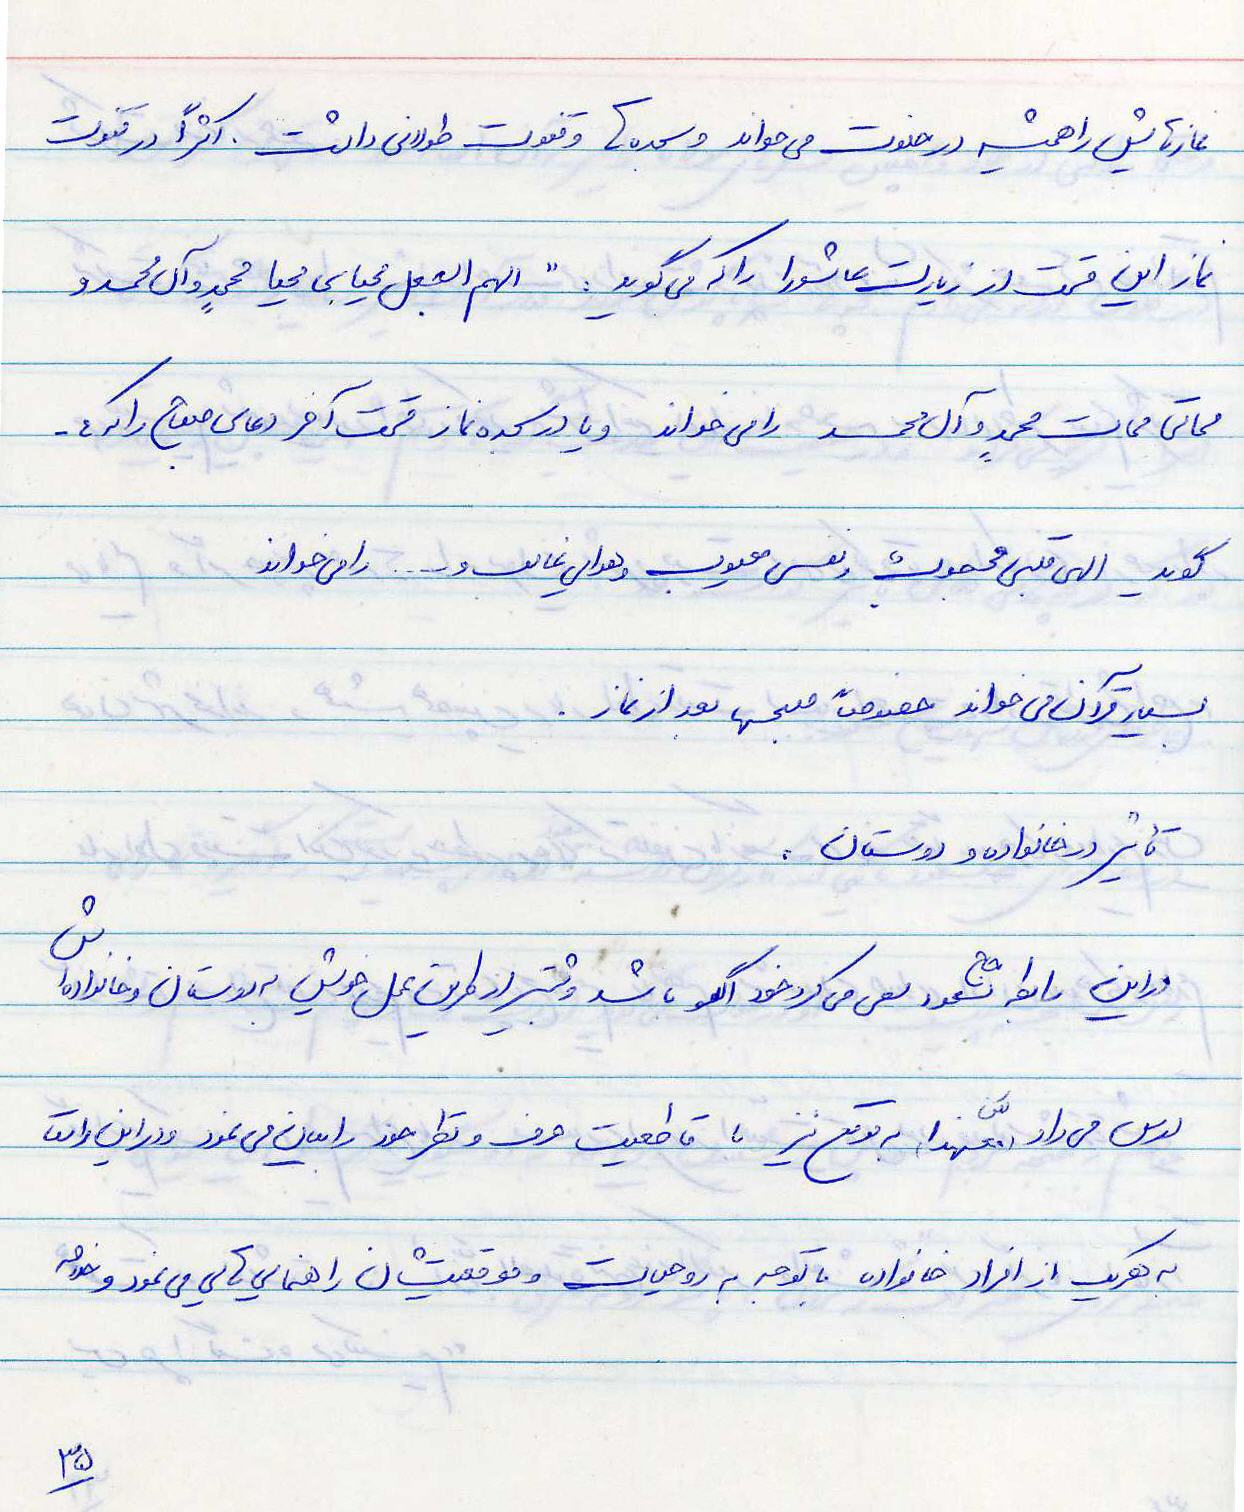 نمازهایش را همیشه در خلوت می‌خواند و سجده‌ها و قنوت طولانی داشت. اکثراً در قنوت
نماز این قسمت از زیارت عاشورا را که می‌گوید: " الهم اجعل محیای محیا محمدٍ و آل محمد و
مماتی ممات محمدٍ و آل محمد را می‌خواند و یا در سجده نماز قسمت آخر دعای صباح را که می-
گوید الهی قلبی محجوب و نفسی معیوب و هوایی غالب و ... را می‌خواند
بسیار قرآن می‌خواند خصوصاً صبحها بعد از نماز.
تأثیر در خانواده و دوستان:
در این رابطه حاج مسعود سعی می‌کرد خود الگو باشد و بیشتر از طریق عمل خویش به دوستان و خانواده‌اش
درس می‌داد لکن به موقع نیز با قاطعیت حرف و نظر خود را بیان می‌نمود و در این راستا
به هریک از افراد خانواده با توجه به روحیات و موقعیتشان راهنمایی‌هایی می‌نمود و خلاصه
۳۵